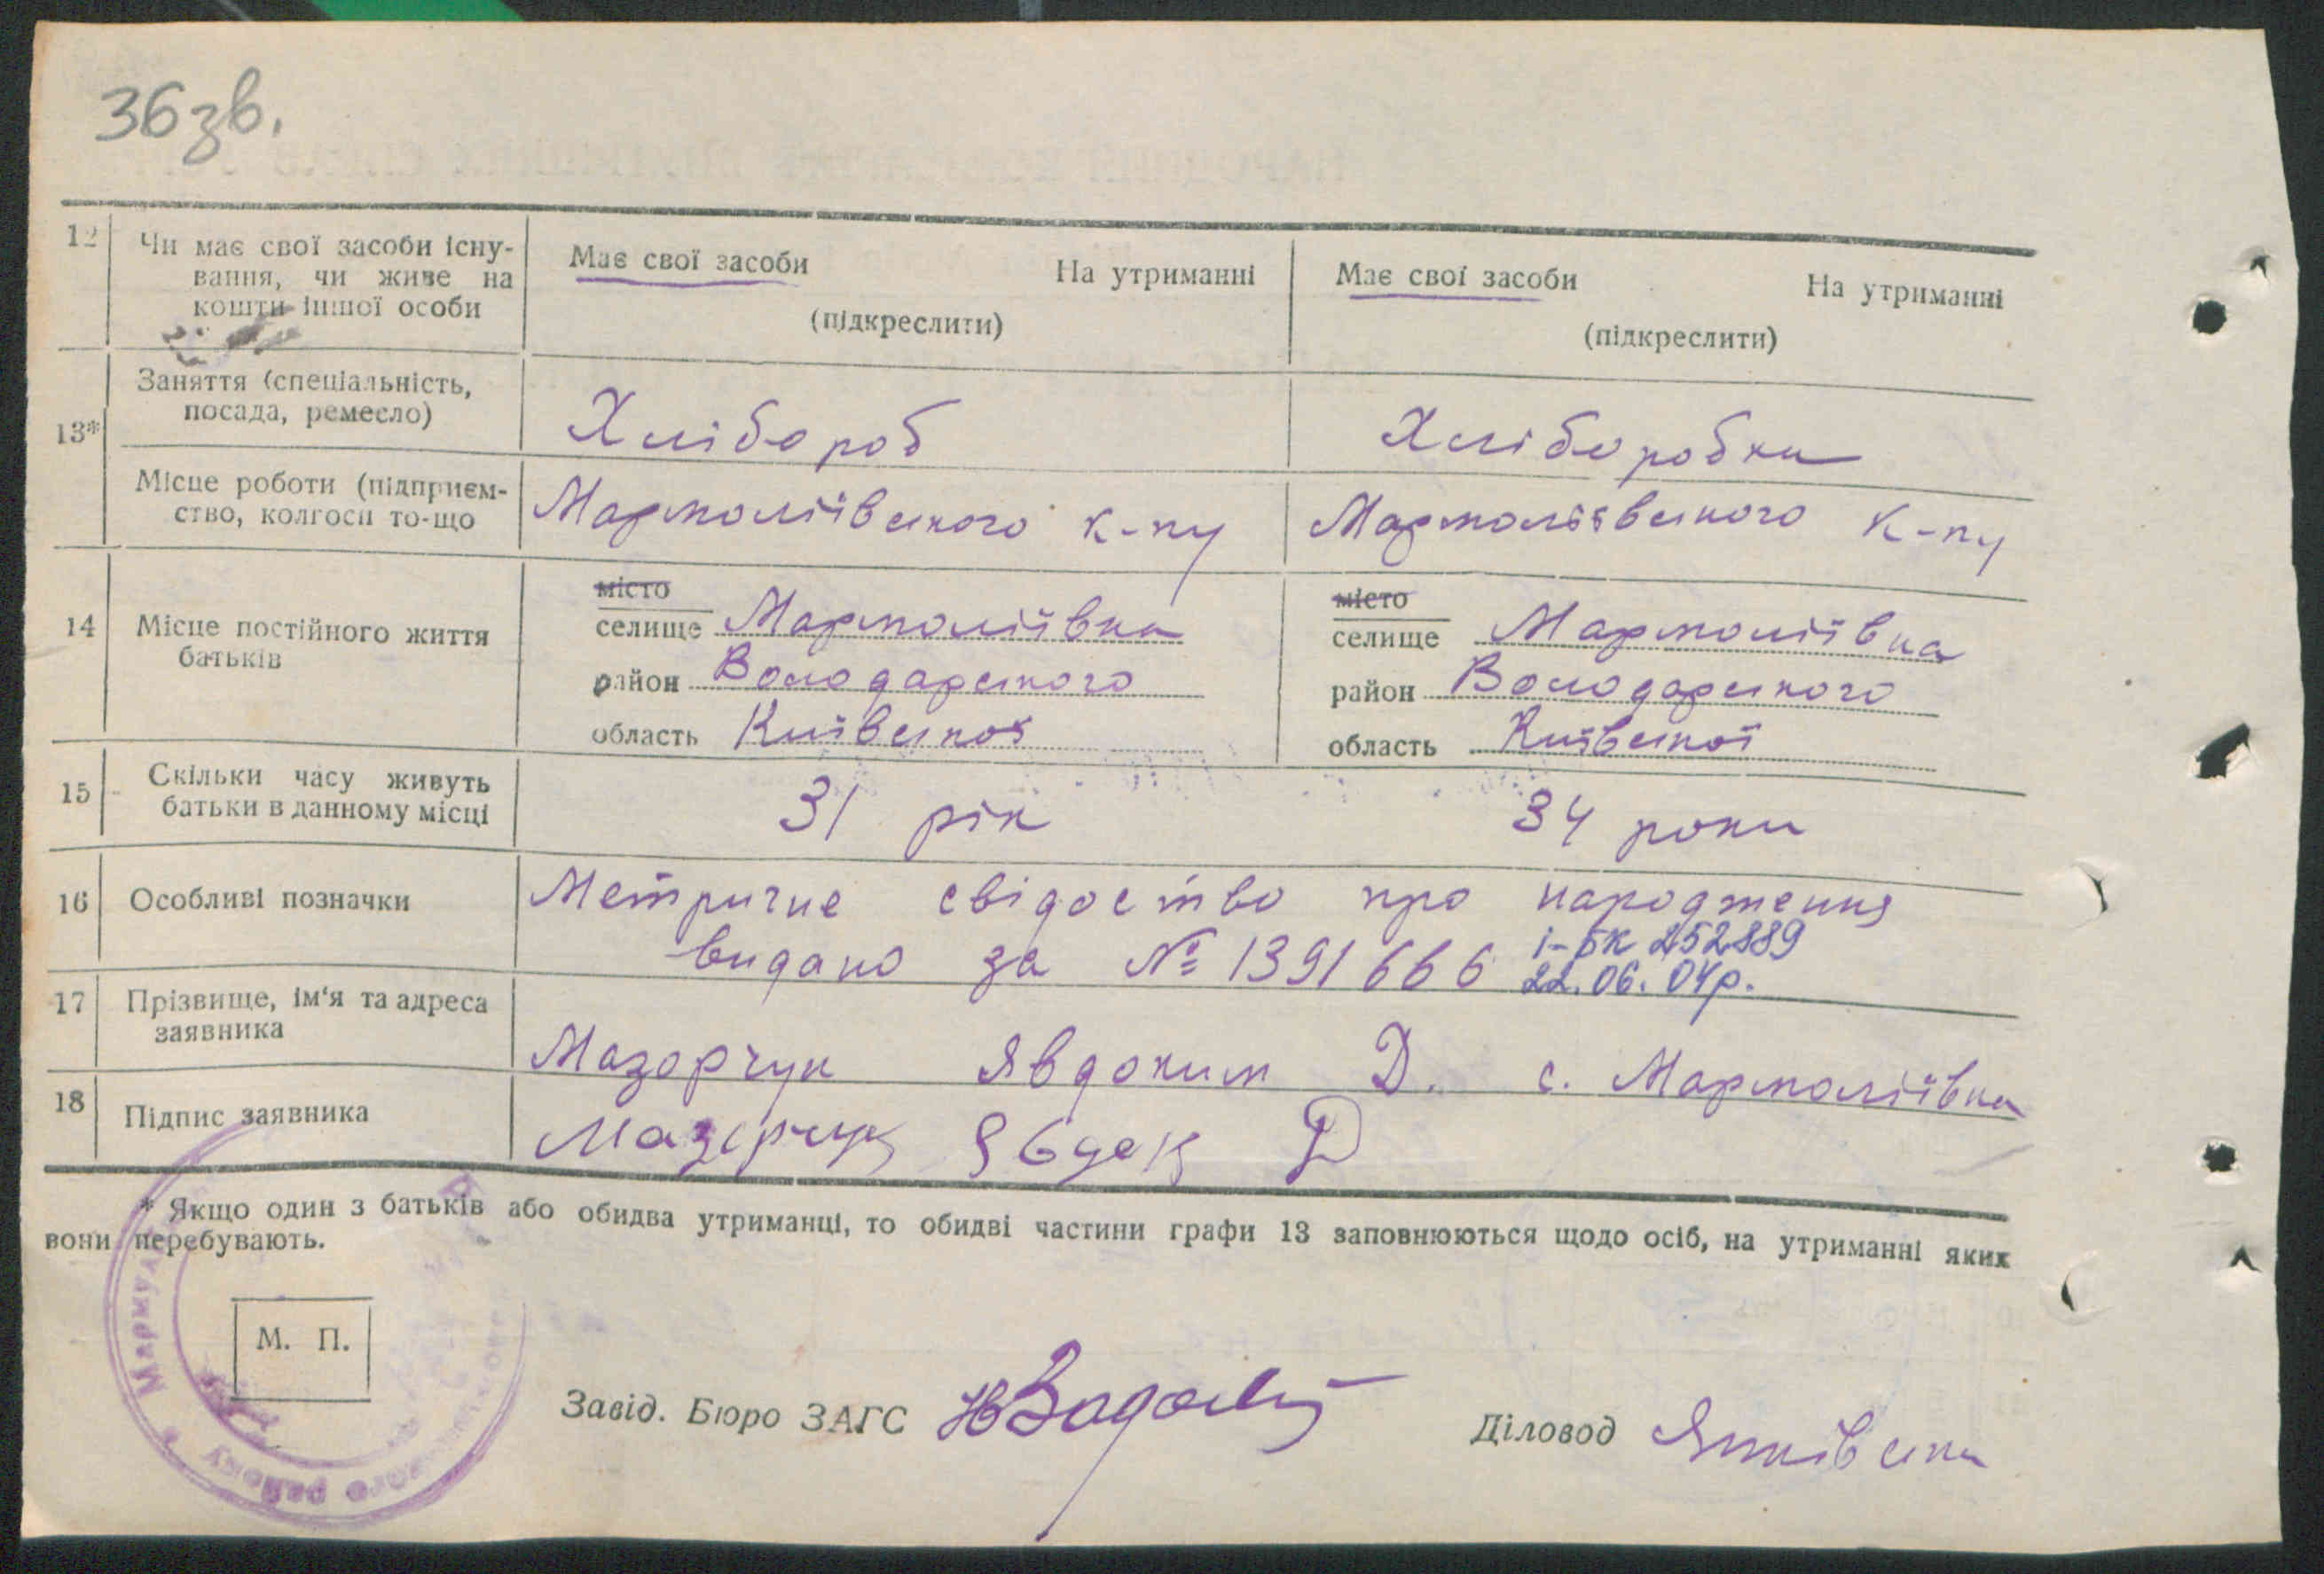 36 зв.
12 Чи має свої засоби існу-
вання, чи живе на
кошти іншої особи
Має свої засоби На утриманні
(підкреслити)
Має свої засоби На утриманні
(підкреслити)
13* Заняття (спеціальність,
посада, ремесло)
Хлібороб
Хліборобка
Місце роботи (підприєм-
ство, колгосп то-що
Мармоліївського к-пу
Мармоліївського к-пу
14 Місце постійного життя
батьків
місто
селище Мармоліївка
район Володарського
область Київської
місто
селище Мармоліївка
район Володарського
область Київської
15 Скільки часу живуть
батьки в данному місці
31 рік
34 роки
16 Особливі позначки
Метричне свідоство про народження
видано за № 1391666 і-БК 252889
22.06.04р.
17 Прізвище, ім'я та адреса
заявника
Мазорчук Явдоким Д. с. Мармоліївка
18 Підпис заявника
Мазорчук Явдок Д
* Якщо один з батьків або обидва утриманці, то обидві частини графи 13 заповнюються щодо осіб, на утриманні яких
вони перебувають.
М. П.
району
Завід. Бюро ЗАГС
Діловод